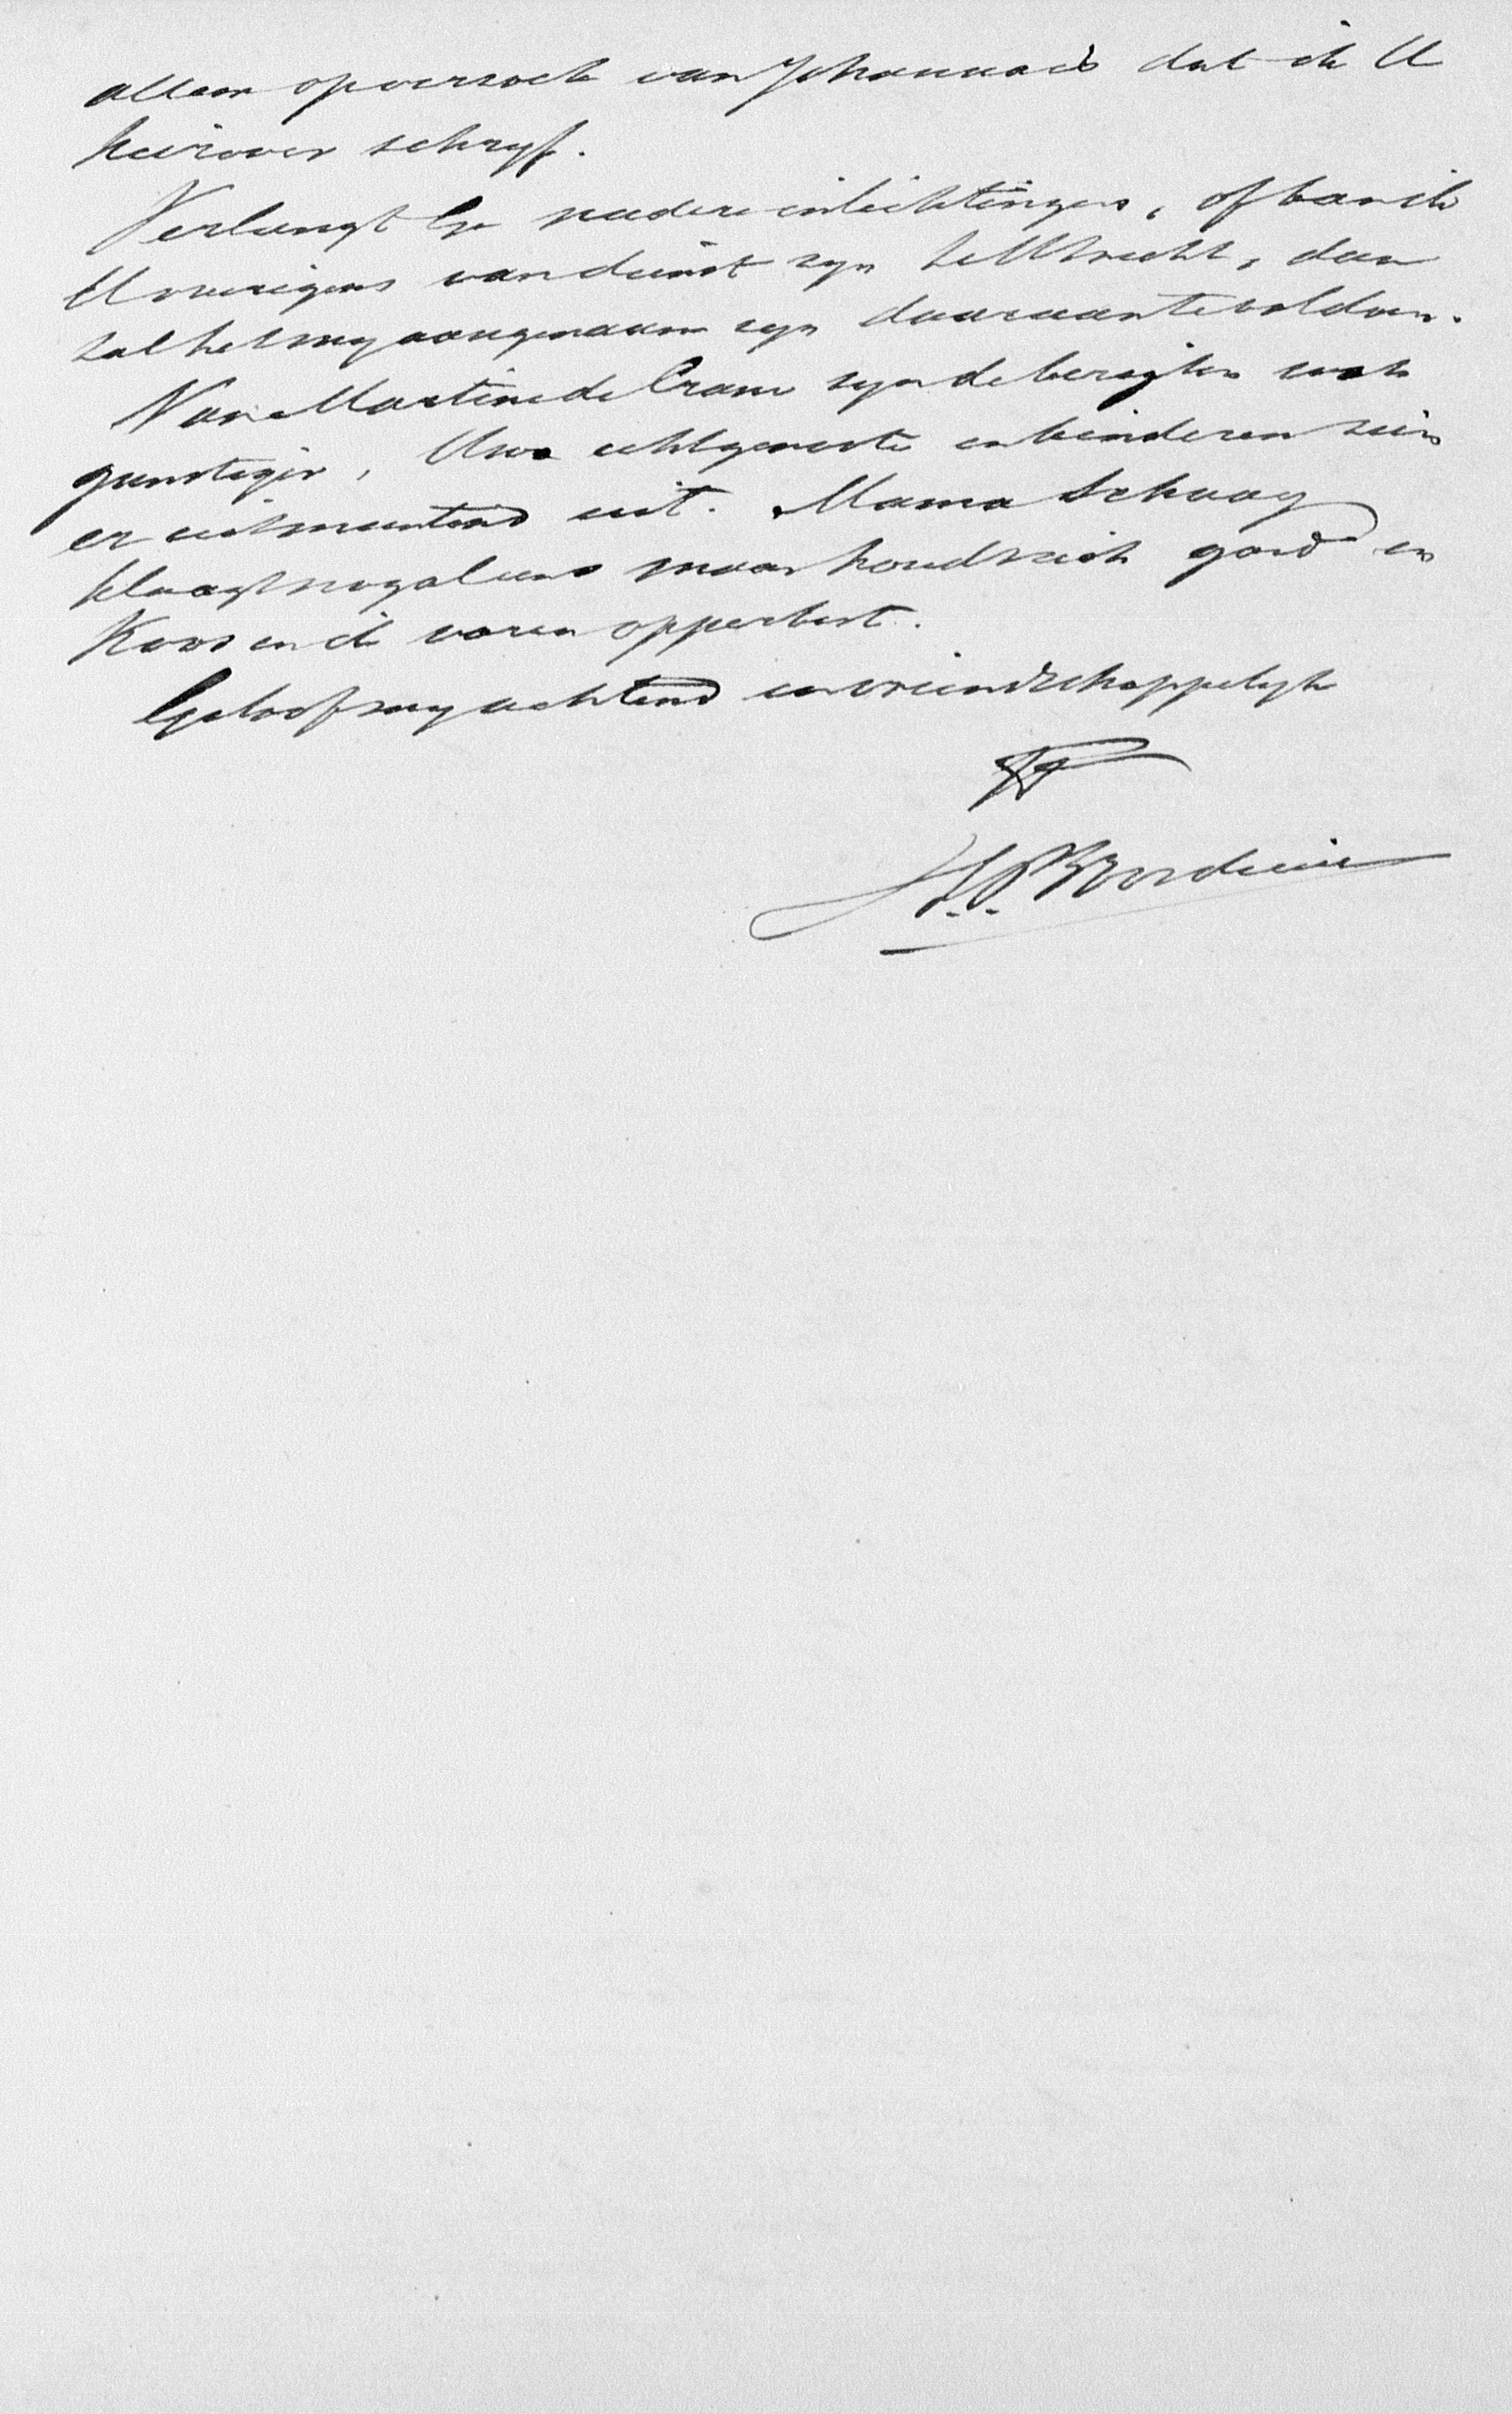 alleen op verzoek van Johanna is dat ik U
hierover schryf.
Verlangt Ge nadere inlichtingen, of kan ik
U overigens van dienst zyn zelf terecht, dan
zal het my aangenaam zyn daaraan te voldoen.
Van Martine de Crane zyn de berigten ook
gunstiger, Uwe echtgenoote en kinderen zien
er uitmuntend uit. Mama Schaay
klaagt nog al eens maar houdt zich goed en
Koos en ik varen opperbest.
Geloof my achtend en vriendschappelyk